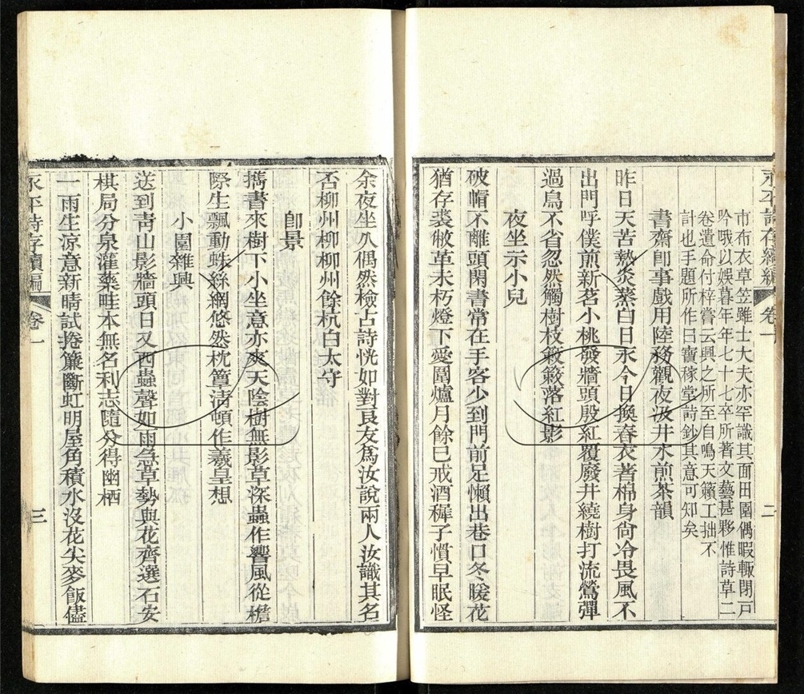 永平詩存續編 卷一 二
市布衣草笠雖士大夫亦罕識其面田園偶暇輒閉戸
吟哦以娛暮年年七十七卒所著文藝甚夥惟詩草二
卷遺命付梓嘗云興之所至自鳴天籟工拙不
計也手題所作曰寶稼堂詩鈔其意可知矣
書齋卽事戲用陸務觀夜汲井水煎茶韻
昨日天苦熱炎蒸白日永今日換春衣著棉身尙冷畏風不
出門呼僕煎新茗小桃發牆頭殷紅覆廢井繞樹打流鶯彈
過鳥不省忽然觸樹枝簌簌落紅影
夜坐示小兒
破帽不離頭閑書常在手客少到門前足懶出巷口冬暖花
猶存裘敝革未朽燈下愛圍爐月餘已戒酒穉子慣早眠怪
余夜坐久偶然檢占詩恍如對良友爲汝說兩人汝識其名
否柳州柳柳州餘杭白太守
卽景
攜書來樹下小坐意亦爽天陰樹無影草深蟲作響風從檐
際生飄動蛛絲網悠然枕簟淸頓作羲皇想
小園雜興
送到靑山影牆頭日又西蟲聲如雨急草勢與花齊選石安
棋局分泉灌藥畦本無名利志隨分得幽栖
一雨生涼意新晴試捲簾斷虹明屋角積水沒花尖麥飯儘
永平詩存續編 卷一 三